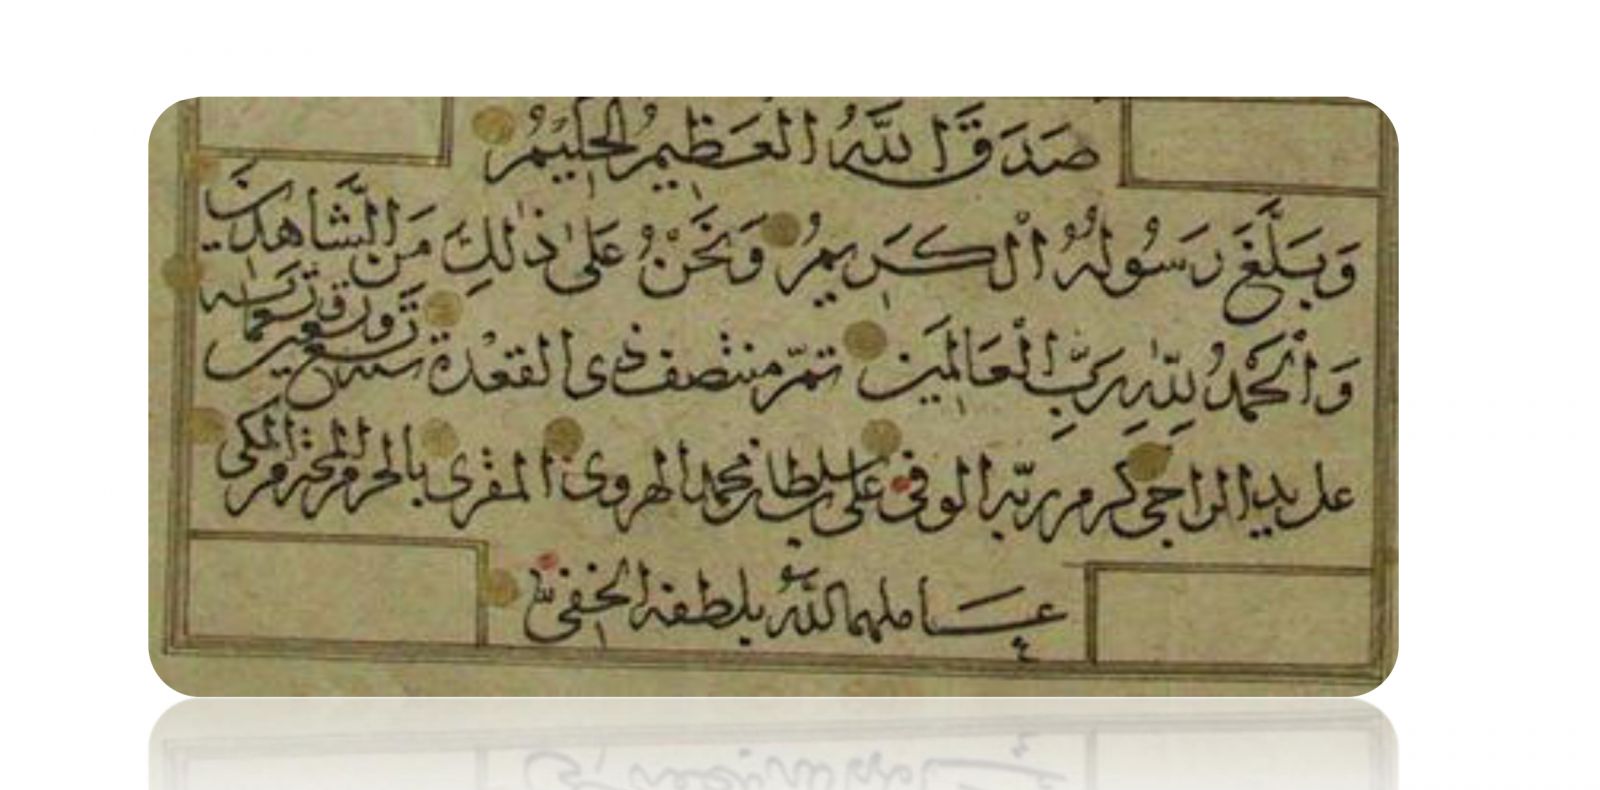 صَدَقَ اللَّهُ الْعَظِيمُ الْحَلِيمُ
وَبَلَّغَ رَسُولُهُ الْكَرِيمُ وَنَحْنُ عَلَى ذٰلِكَ مِنَ الشَّاهِدِينَ
وَالْحَمْدُ لِلّٰهِ رَبِّ الْعَالَمِينَ تمّ منتصف ذى القعدة سنة تسع وتسعين وتسعمائة
على يد الراجى كرم ربّه الوفى على بن سلطان محمد الهروى المقرى بالحرم المحترم المكى
عاملهما الله بلطفه الخفى